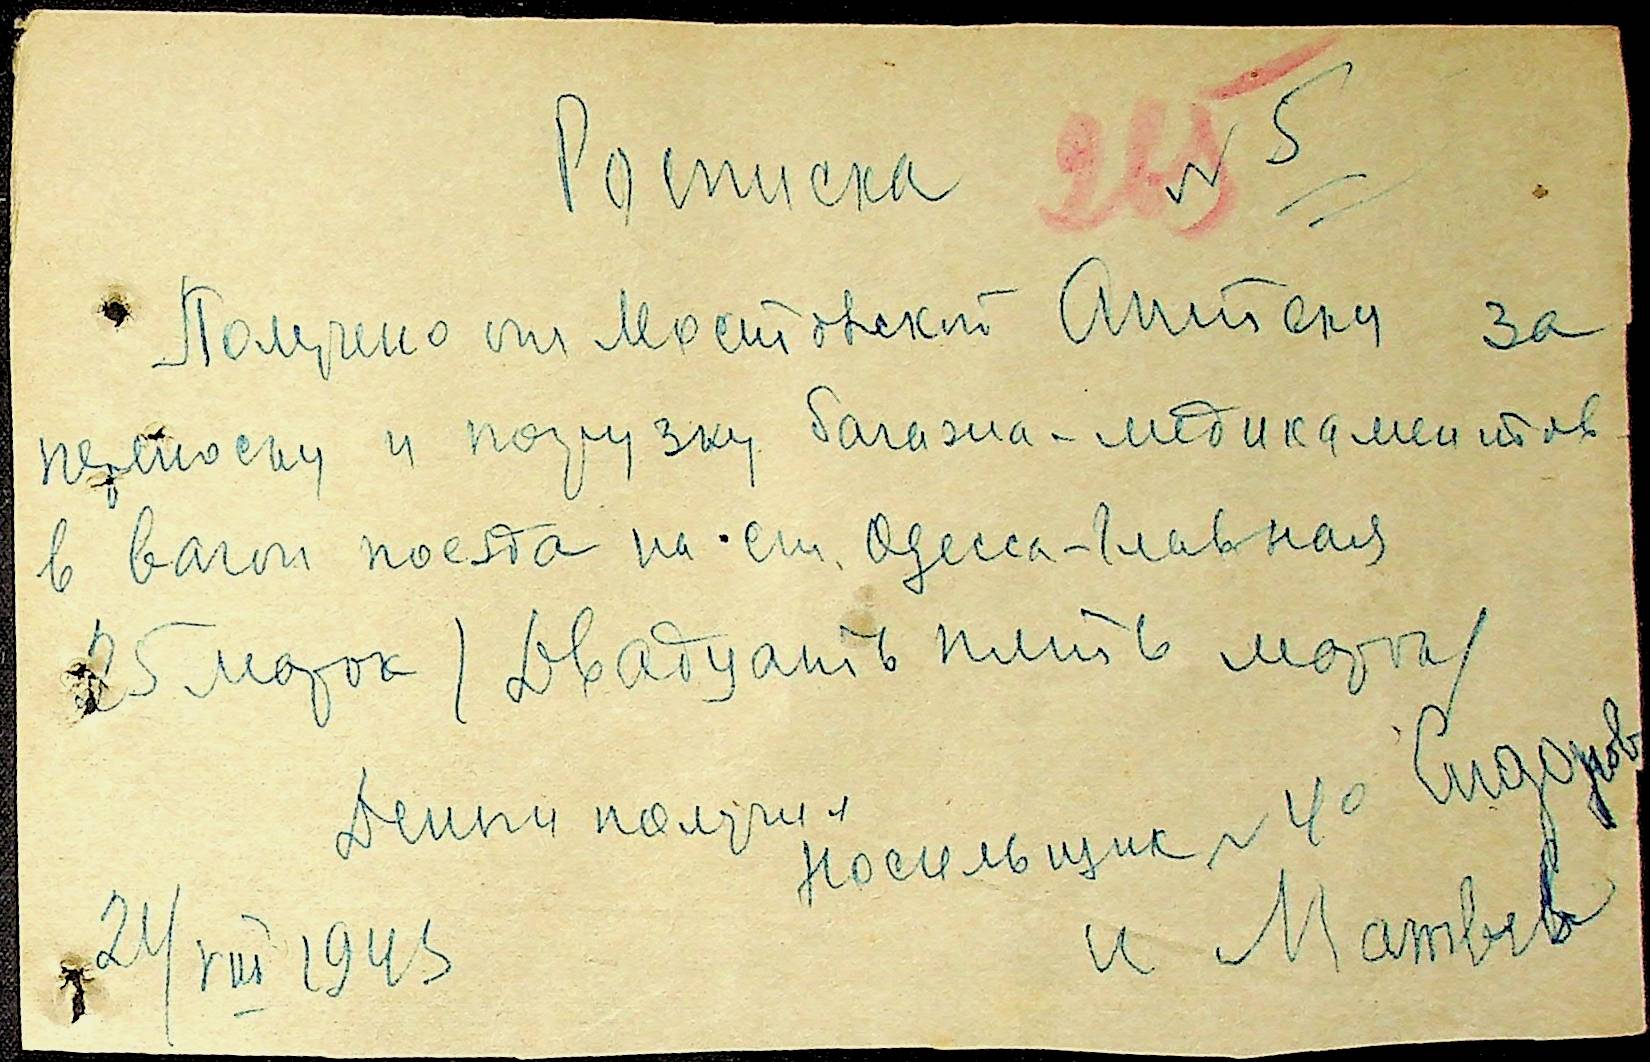 Росписка № 5
265
Получено от Мостовской Аптеки за
переноску и погрузку багажа-медикаментов
в вагон поезда на ст. Одесса-Главная
25 марок / Двадцать пять марок /
Деньги получил
носильщик № 40 Сидоров
и Матвеев
24/VIII 1943